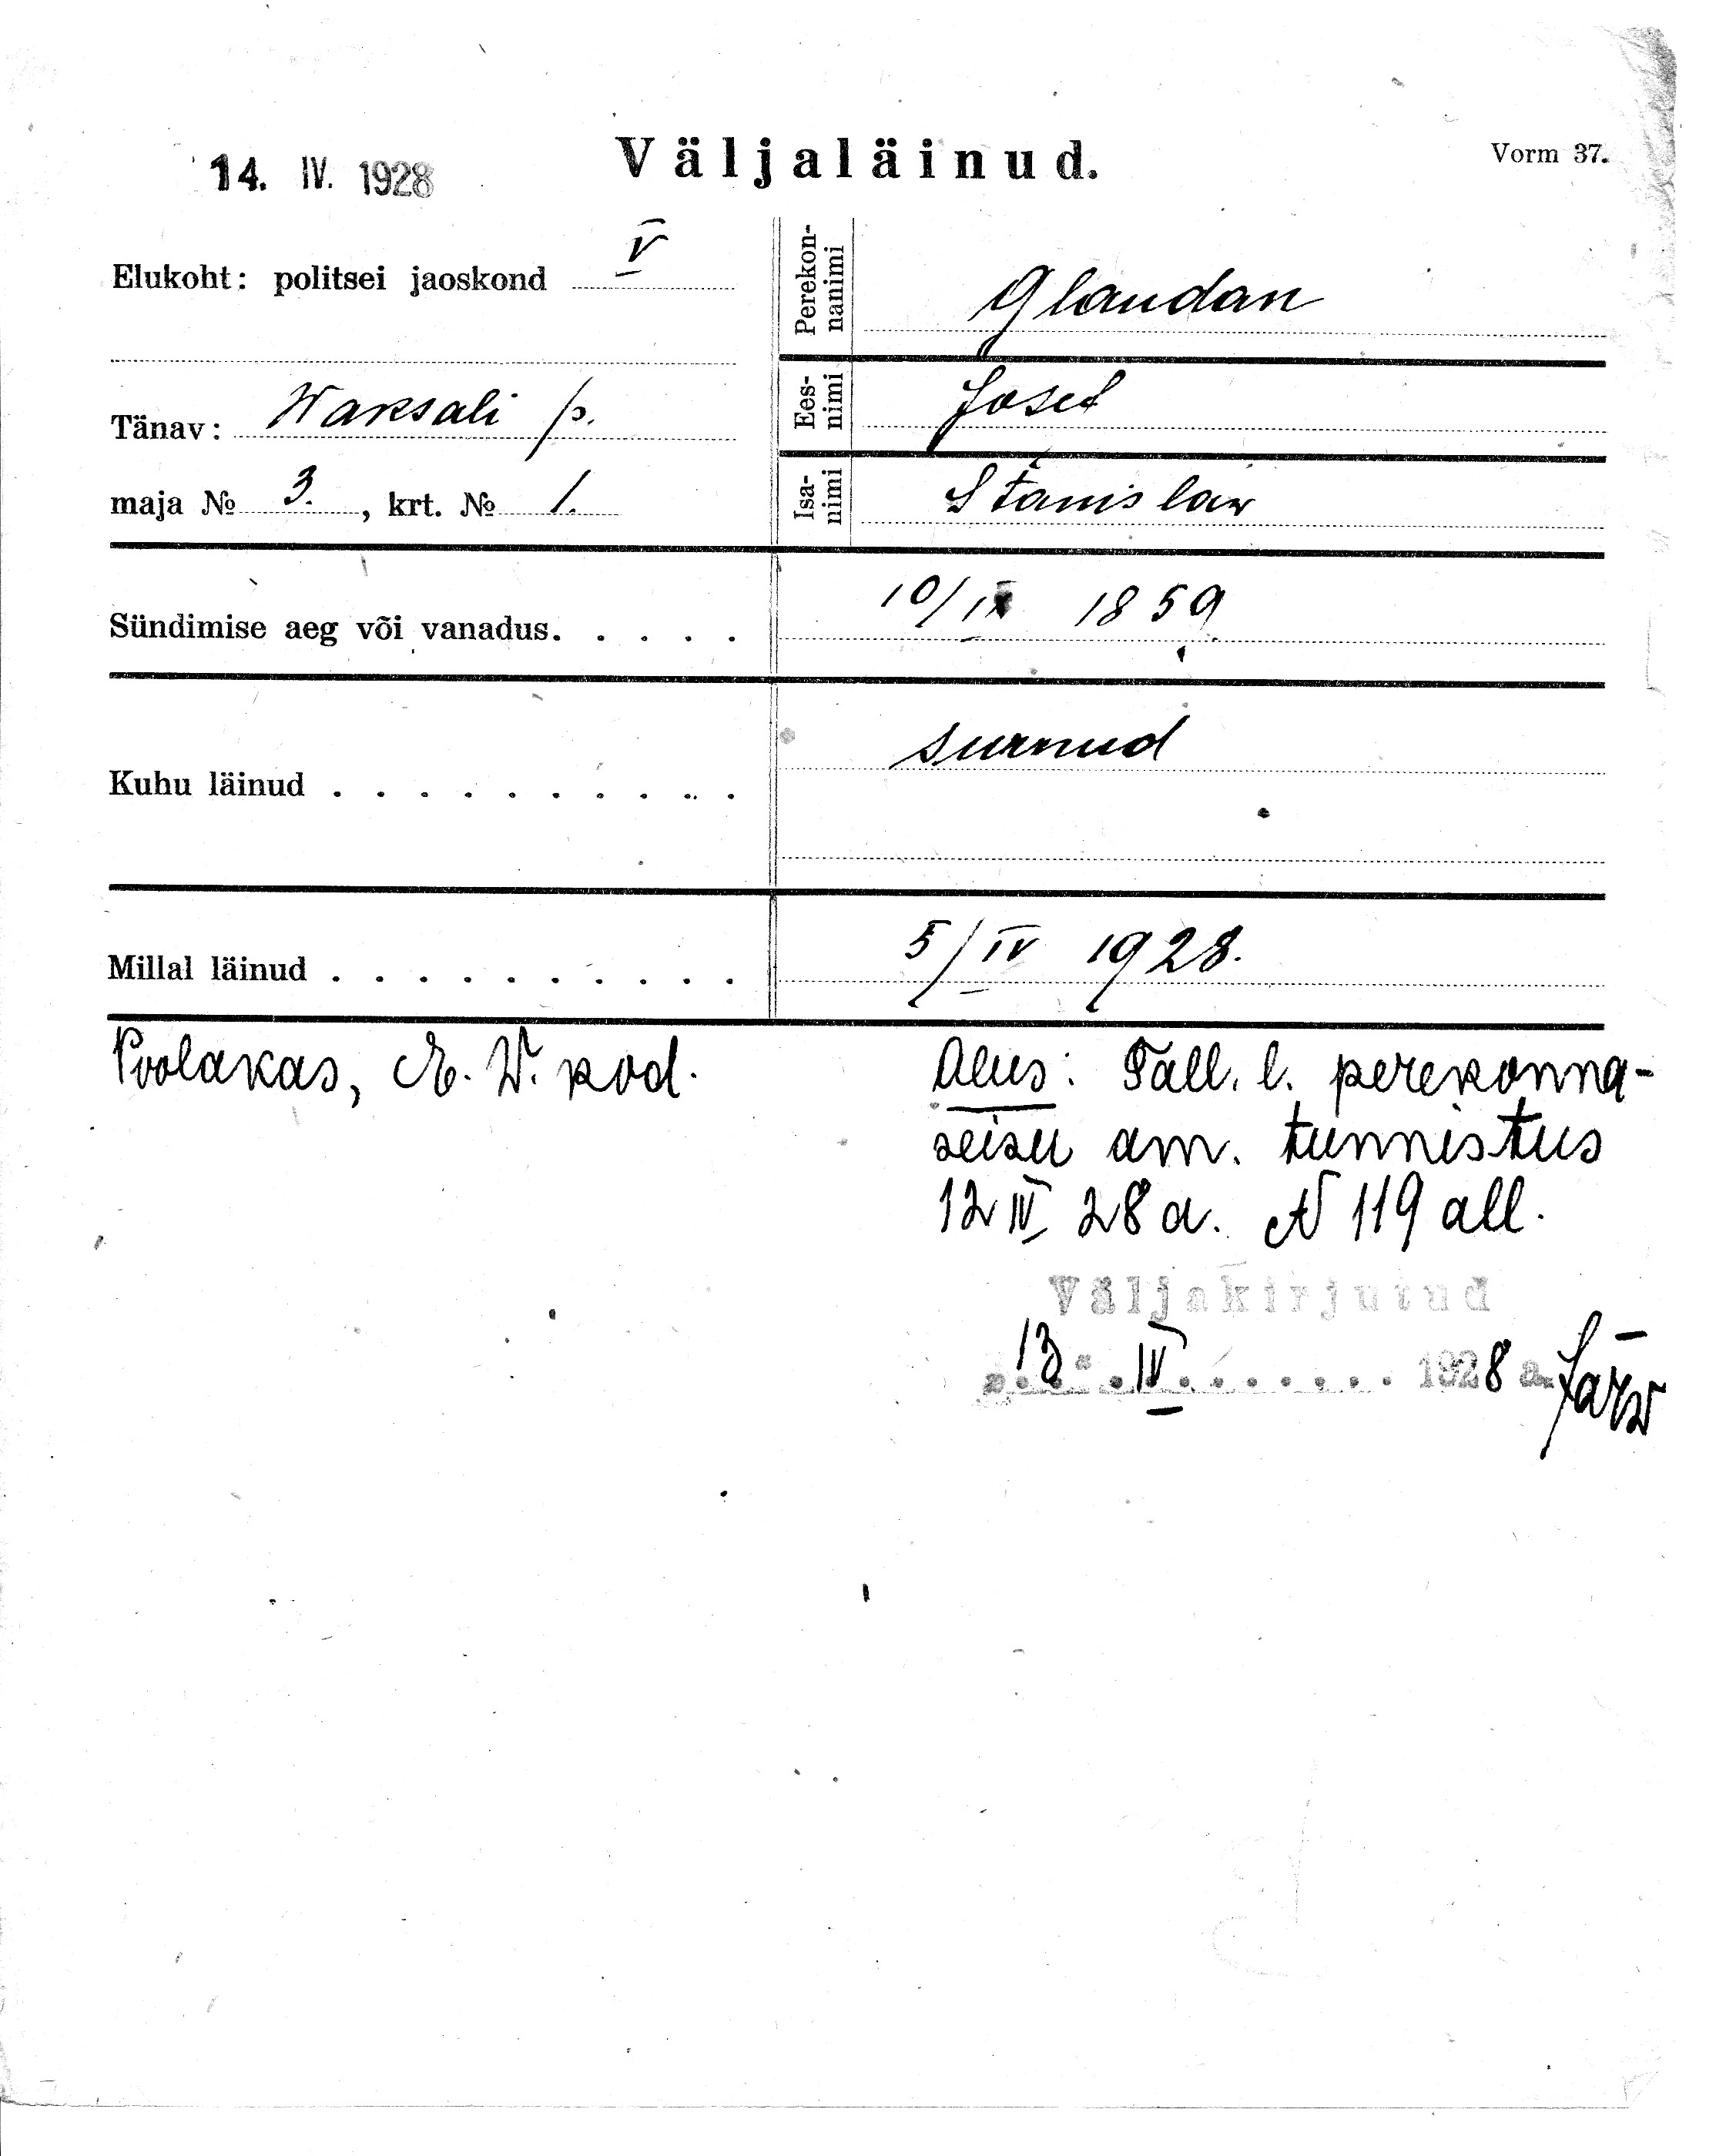 14. IV. 1928
Väljaläinud.
Vorm 37.
Elukoht: politsei jaoskond V
Tänav: Waksali p.
maja № 3., krt. № 1.
Perekon-
nanimi
Glaudan
Ees-
nimi
Josef
Isa-
nimi
Stanislaw
Sündimise aeg või vanadus. . . . . 10/IX 1859
Kuhu läinud . . . . . . . . . . surnud
Millal läinud . . . . . . . . . . 5/IV 1928.
Poolakas, E. W. kod.
Alus: Tall. l. perekonna-
seisu am. tunnistus
12 IV 28 a. N 119 all.
Väljakirjutud
"13" IV 1928 a. Järw